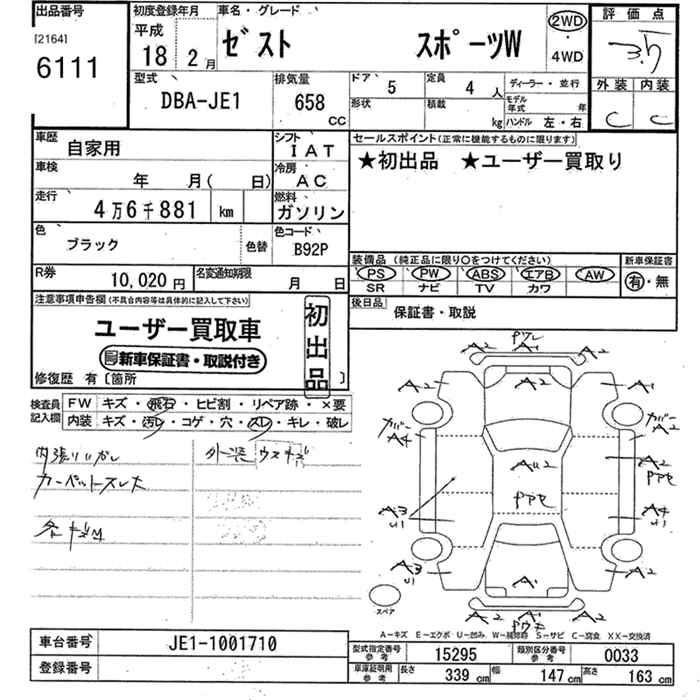 出品番号
[2164]
6111
初度登録年月
平成
18 2月
車名・グレード
ゼスト スポーツW
2WD
・
4WD
評価点
3.5
外装 内装
C C
型式
DBA-JE1
排気量
658
CC
ドア
5
定員
4人
ディーラー・並行
形状
積載
kg
モデル年式
年
ハンドル 左・右
車歴
自家用
シフト
IAT
セールスポイント(正常に機能するものに限ります)
★初出品 ★ユーザー買取り
車検
年 月( 日)
冷房
AC
走行
4万6千881 km
燃料
ガソリン
色
ブラック
色替
色コード
B92P
装備品 (純正品に限り○をつけてください)
新車保証書
PS PW ABS エアB AW
SR ナビ TV カワ
有・無
R券
10,020円
名変通知期限
月 日
後日品
保証書・取説
注意事項申告欄(不具合内容等は具体的に記入して下さい)
ユーザー買取車
新車保証書・取説付き
初出品
修復歴 有〔箇所 〕
検査員記入欄
FW キズ・飛石・ヒビ割・リペア跡・×要
内装 キズ・汚レ・コゲ・穴・スレ・キレ・破レ
カーペットスレ大
外装
A2 A1 A2
A2 A2 A1
A4 A2
A2
AU2
PPセ
A2
PPセ
A3
A4
A3 A2
A1
A2 A2
スペア
A-キズ E-エクボ U-凹み W-補修跡 S-サビ C-腐食 XX-交換済
車台番号
JE1-1001710
登録番号
型式指定番号
参考
15295
類別区分番号
参考
0033
車庫証明用
参考
長さ
339 cm
幅
147 cm
高さ
163 cm